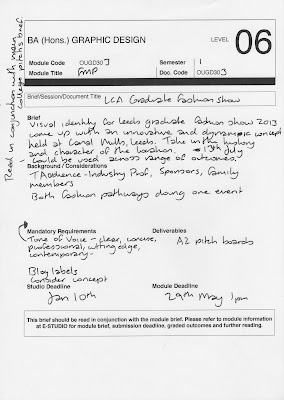 BA (Hons.) GRAPHIC DESIGN
LEVEL 06
Module Code OUGD303 Semester 1
Module Title FMP Doc. Code OUGD303
Read in conjunction with main
college pitchs brief
Brief/Session/Document Title LCA Graduate fashion show
Brief
Visual identity for Leeds graduate fashion show 2013
come up with an innovative and dynamic concept
held at Canal Mills, Leeds. Take in the history
and character of the location. - 13th July
- Could be used across range of outcomes.
Background / Considerations
TAudience - Industry Prof, Sponsors, family
members
Both fashion pathways doing one event
Mandatory Requirements
Tone of Voice - clear, concise,
professional, cutting edge,
contemporary.
Blog labels
Consider concept
Deliverables
A2 pitch boards
Studio Deadline
Jan 10th
Module Deadline
29th May 1pm
This brief should be read in conjunction with the module brief. Please refer to module information
at E-STUDIO for module brief, submission deadline, graded outcomes and further reading.